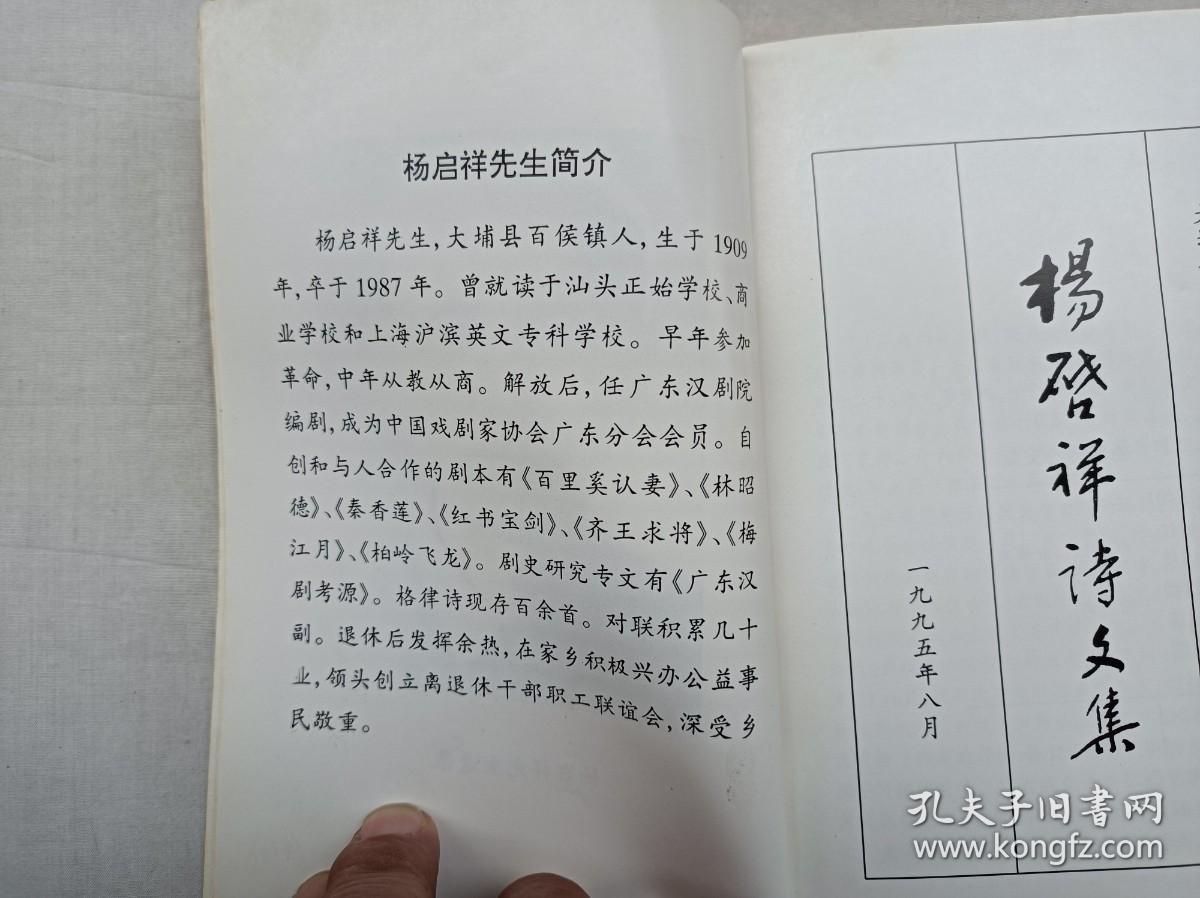 杨启祥先生简介
杨启祥先生，大埔县百侯镇人，生于1909
年，卒于1987年。曾就读于汕头正始学校、商
业学校和上海沪滨英文专科学校。早年参加
革命，中年从教从商。解放后，任广东汉剧院
编剧，成为中国戏剧家协会广东分会会员。自
创和与人合作的剧本有《百里奚认妻》、《林昭
德》、《秦香莲》、《红书宝剑》、《齐王求将》、《梅
江月》、《柏岭飞龙》。剧史研究专文有《广东汉
剧考源》。格律诗现存百余首。对联积累几十
副。退休后发挥余热，在家乡积极兴办公益事
业，领头创立离退休干部职工联谊会，深受乡
民敬重。
楊啓祥诗文集
一九九五年八月
孔夫子旧書网
www.kongfz.com